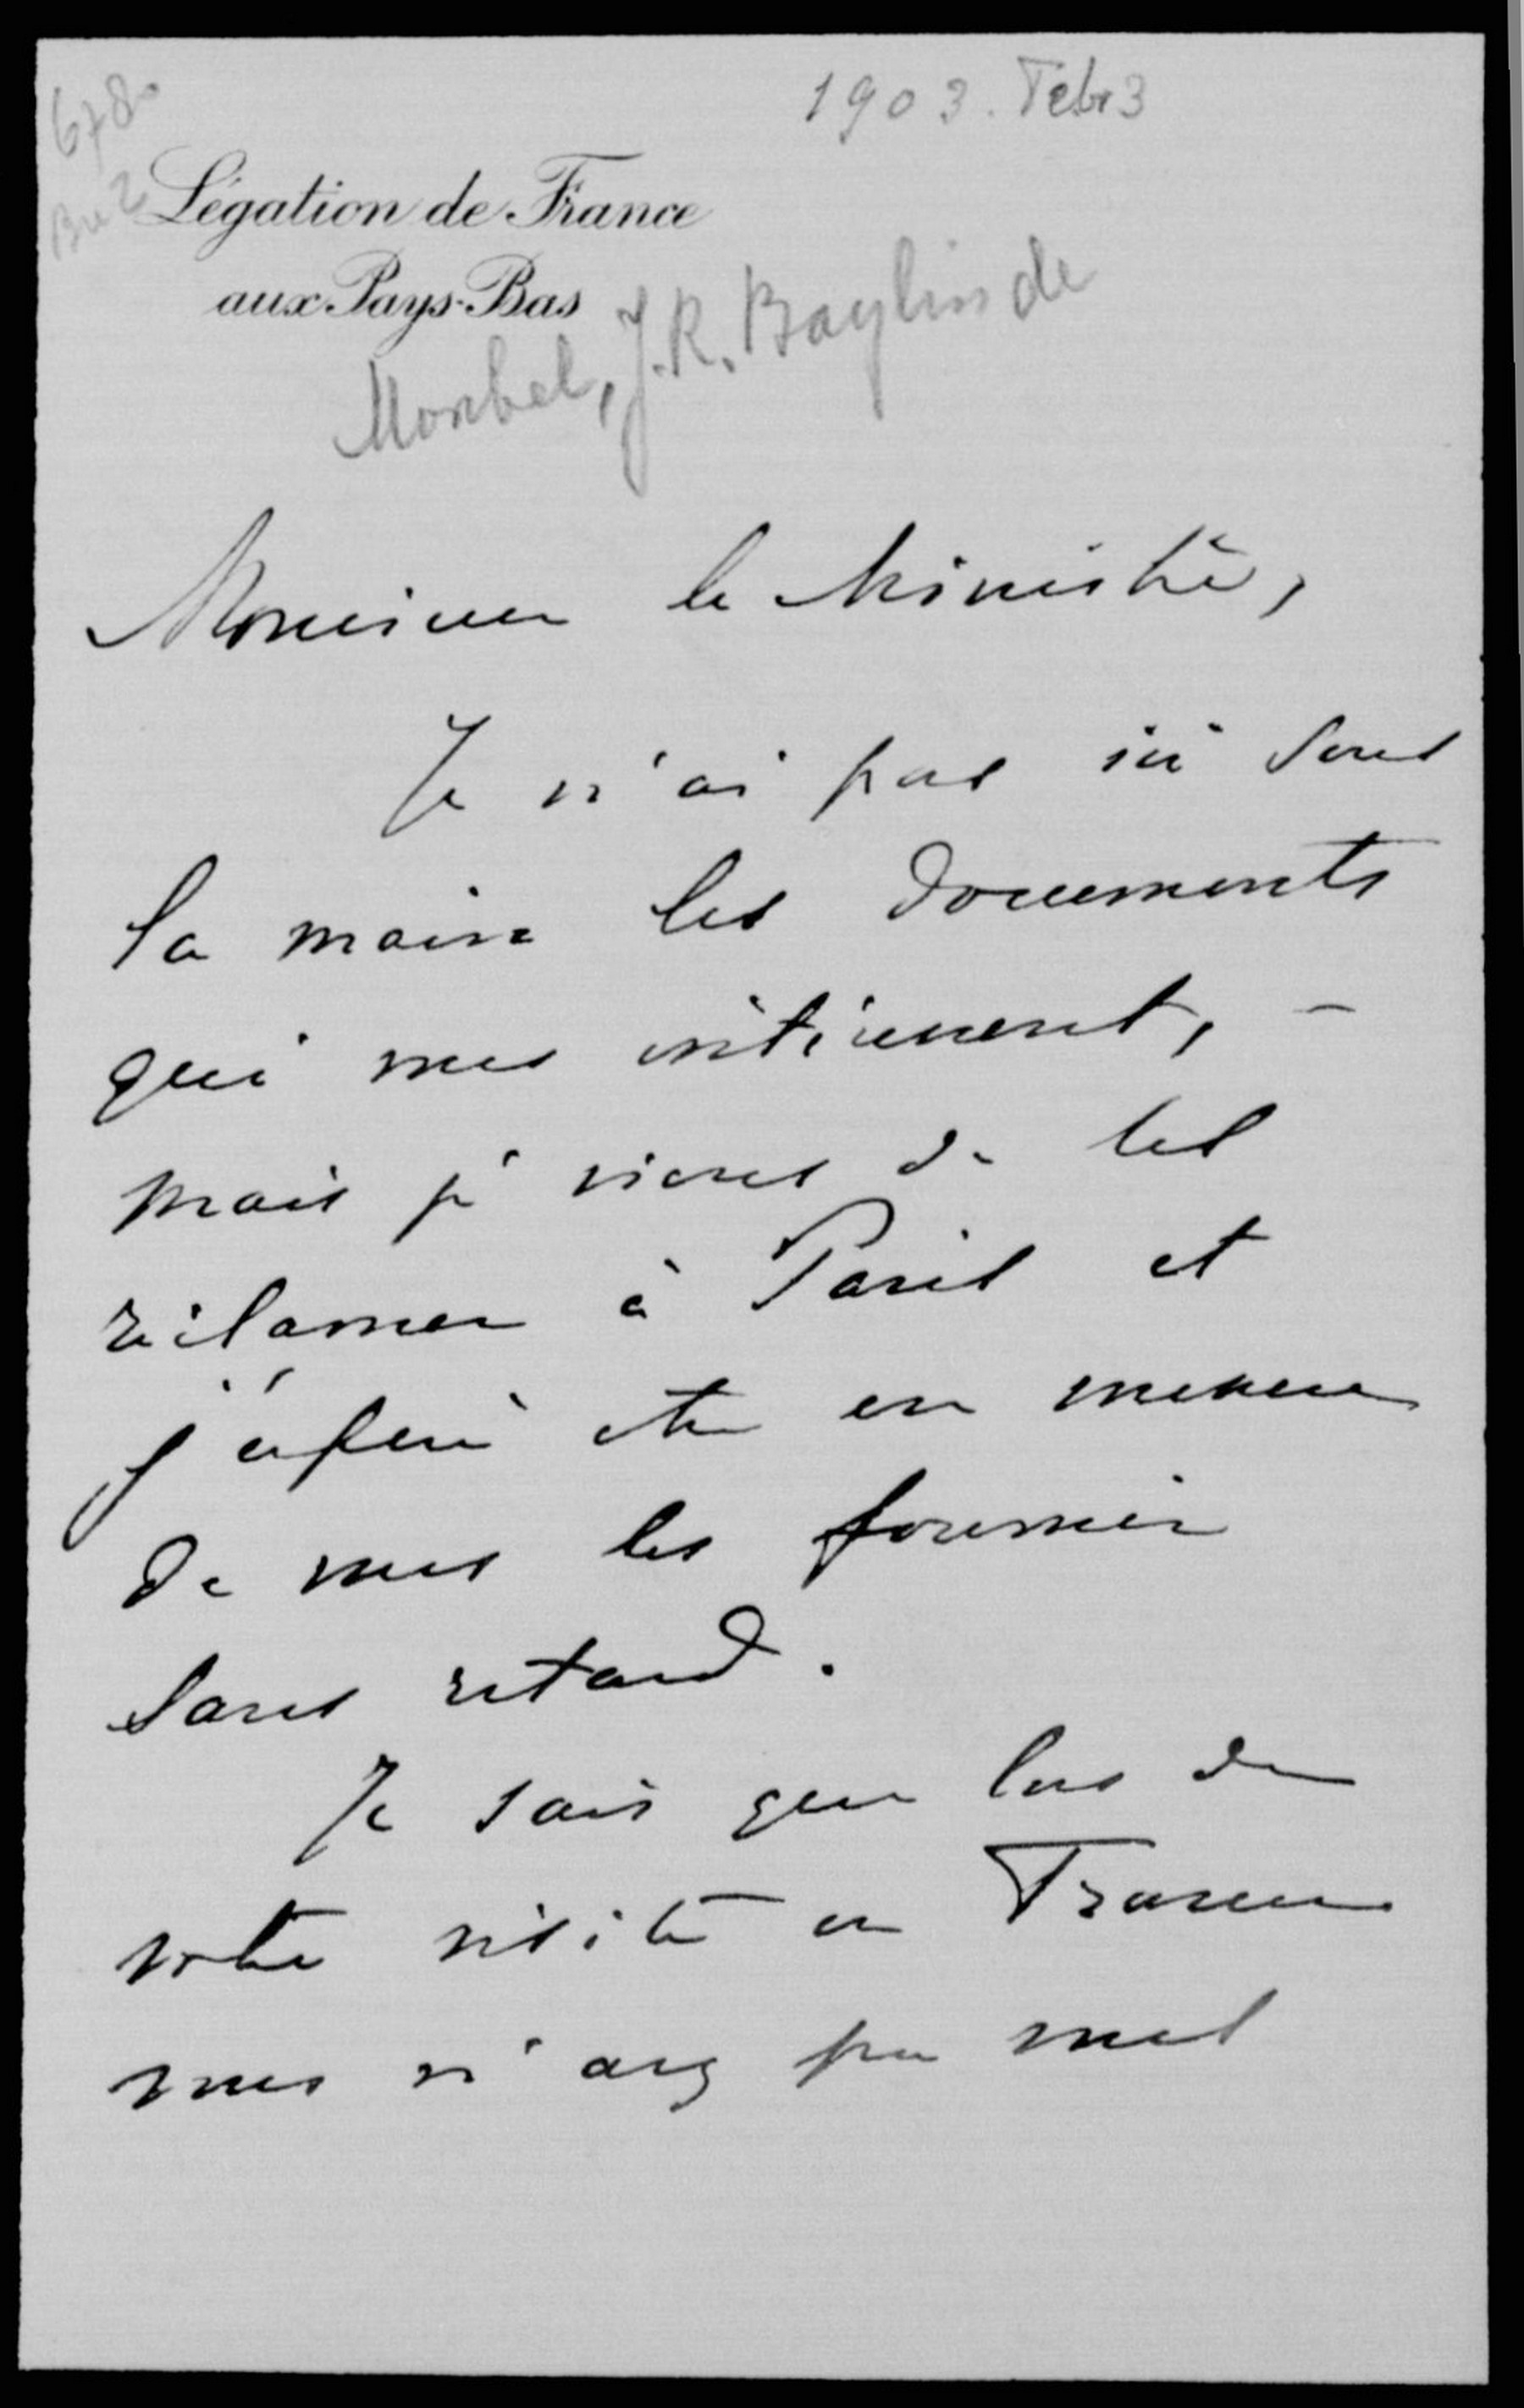 1903. Febr 3
678
Bu 2
Légation de France
aux Pays-Bas
Monbel, J.R. Baylin de
Monsieur le Ministre,
Je n'ai pas ici sous
la main les documents
qui vous intéressent, –
mais je viens de les
réclamer à Paris et
j'espère être en mesure
de vous les fournir
sans retard.
Je sais que lors de
votre visite en France
vous n'avez pu vous